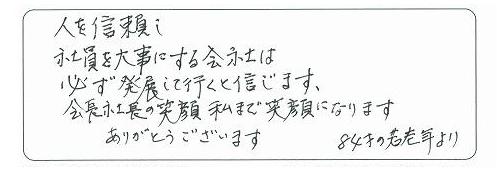 人を信頼し
社員を大事にする会社は
必ず発展して行くと信じます、
会長社長の笑顔 私まで笑顔になります
ありがとうございます 84才の若老年より